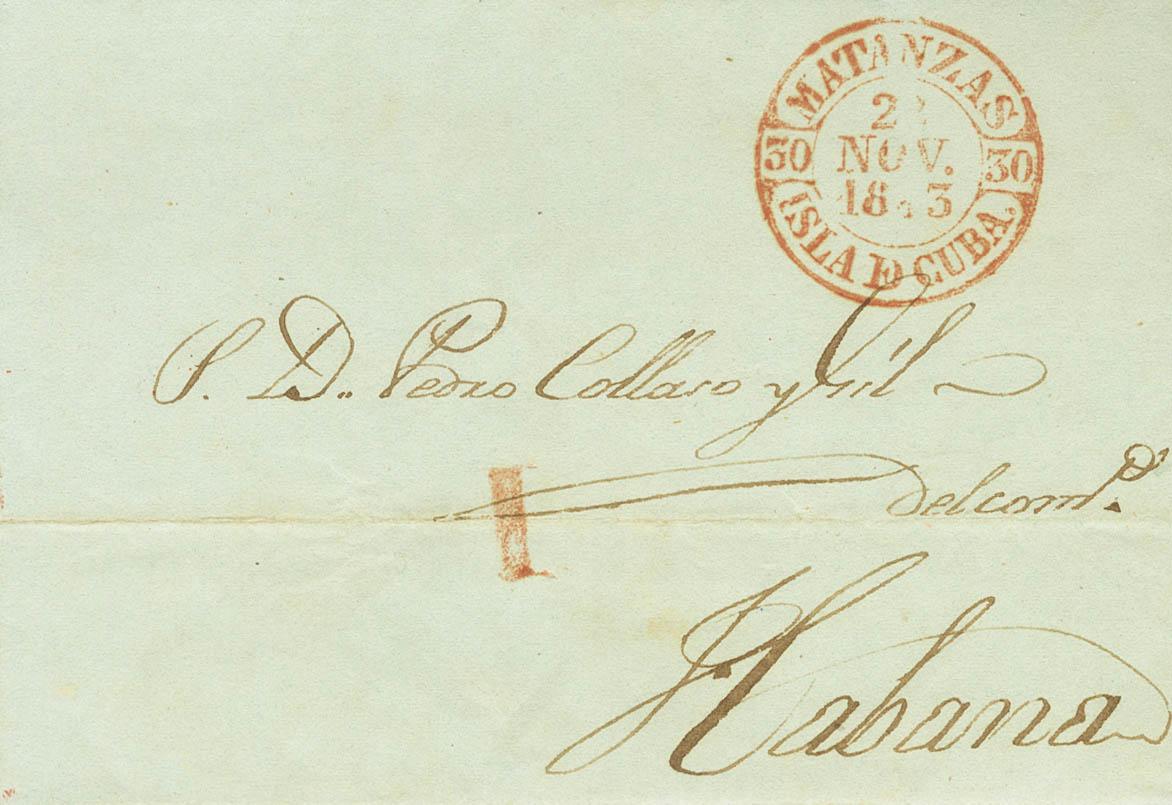 MATANZAS
30 NOV. 30
ISLA DE CUBA.
S. D. Pedro Collaso y Gil
del comº.
Habana